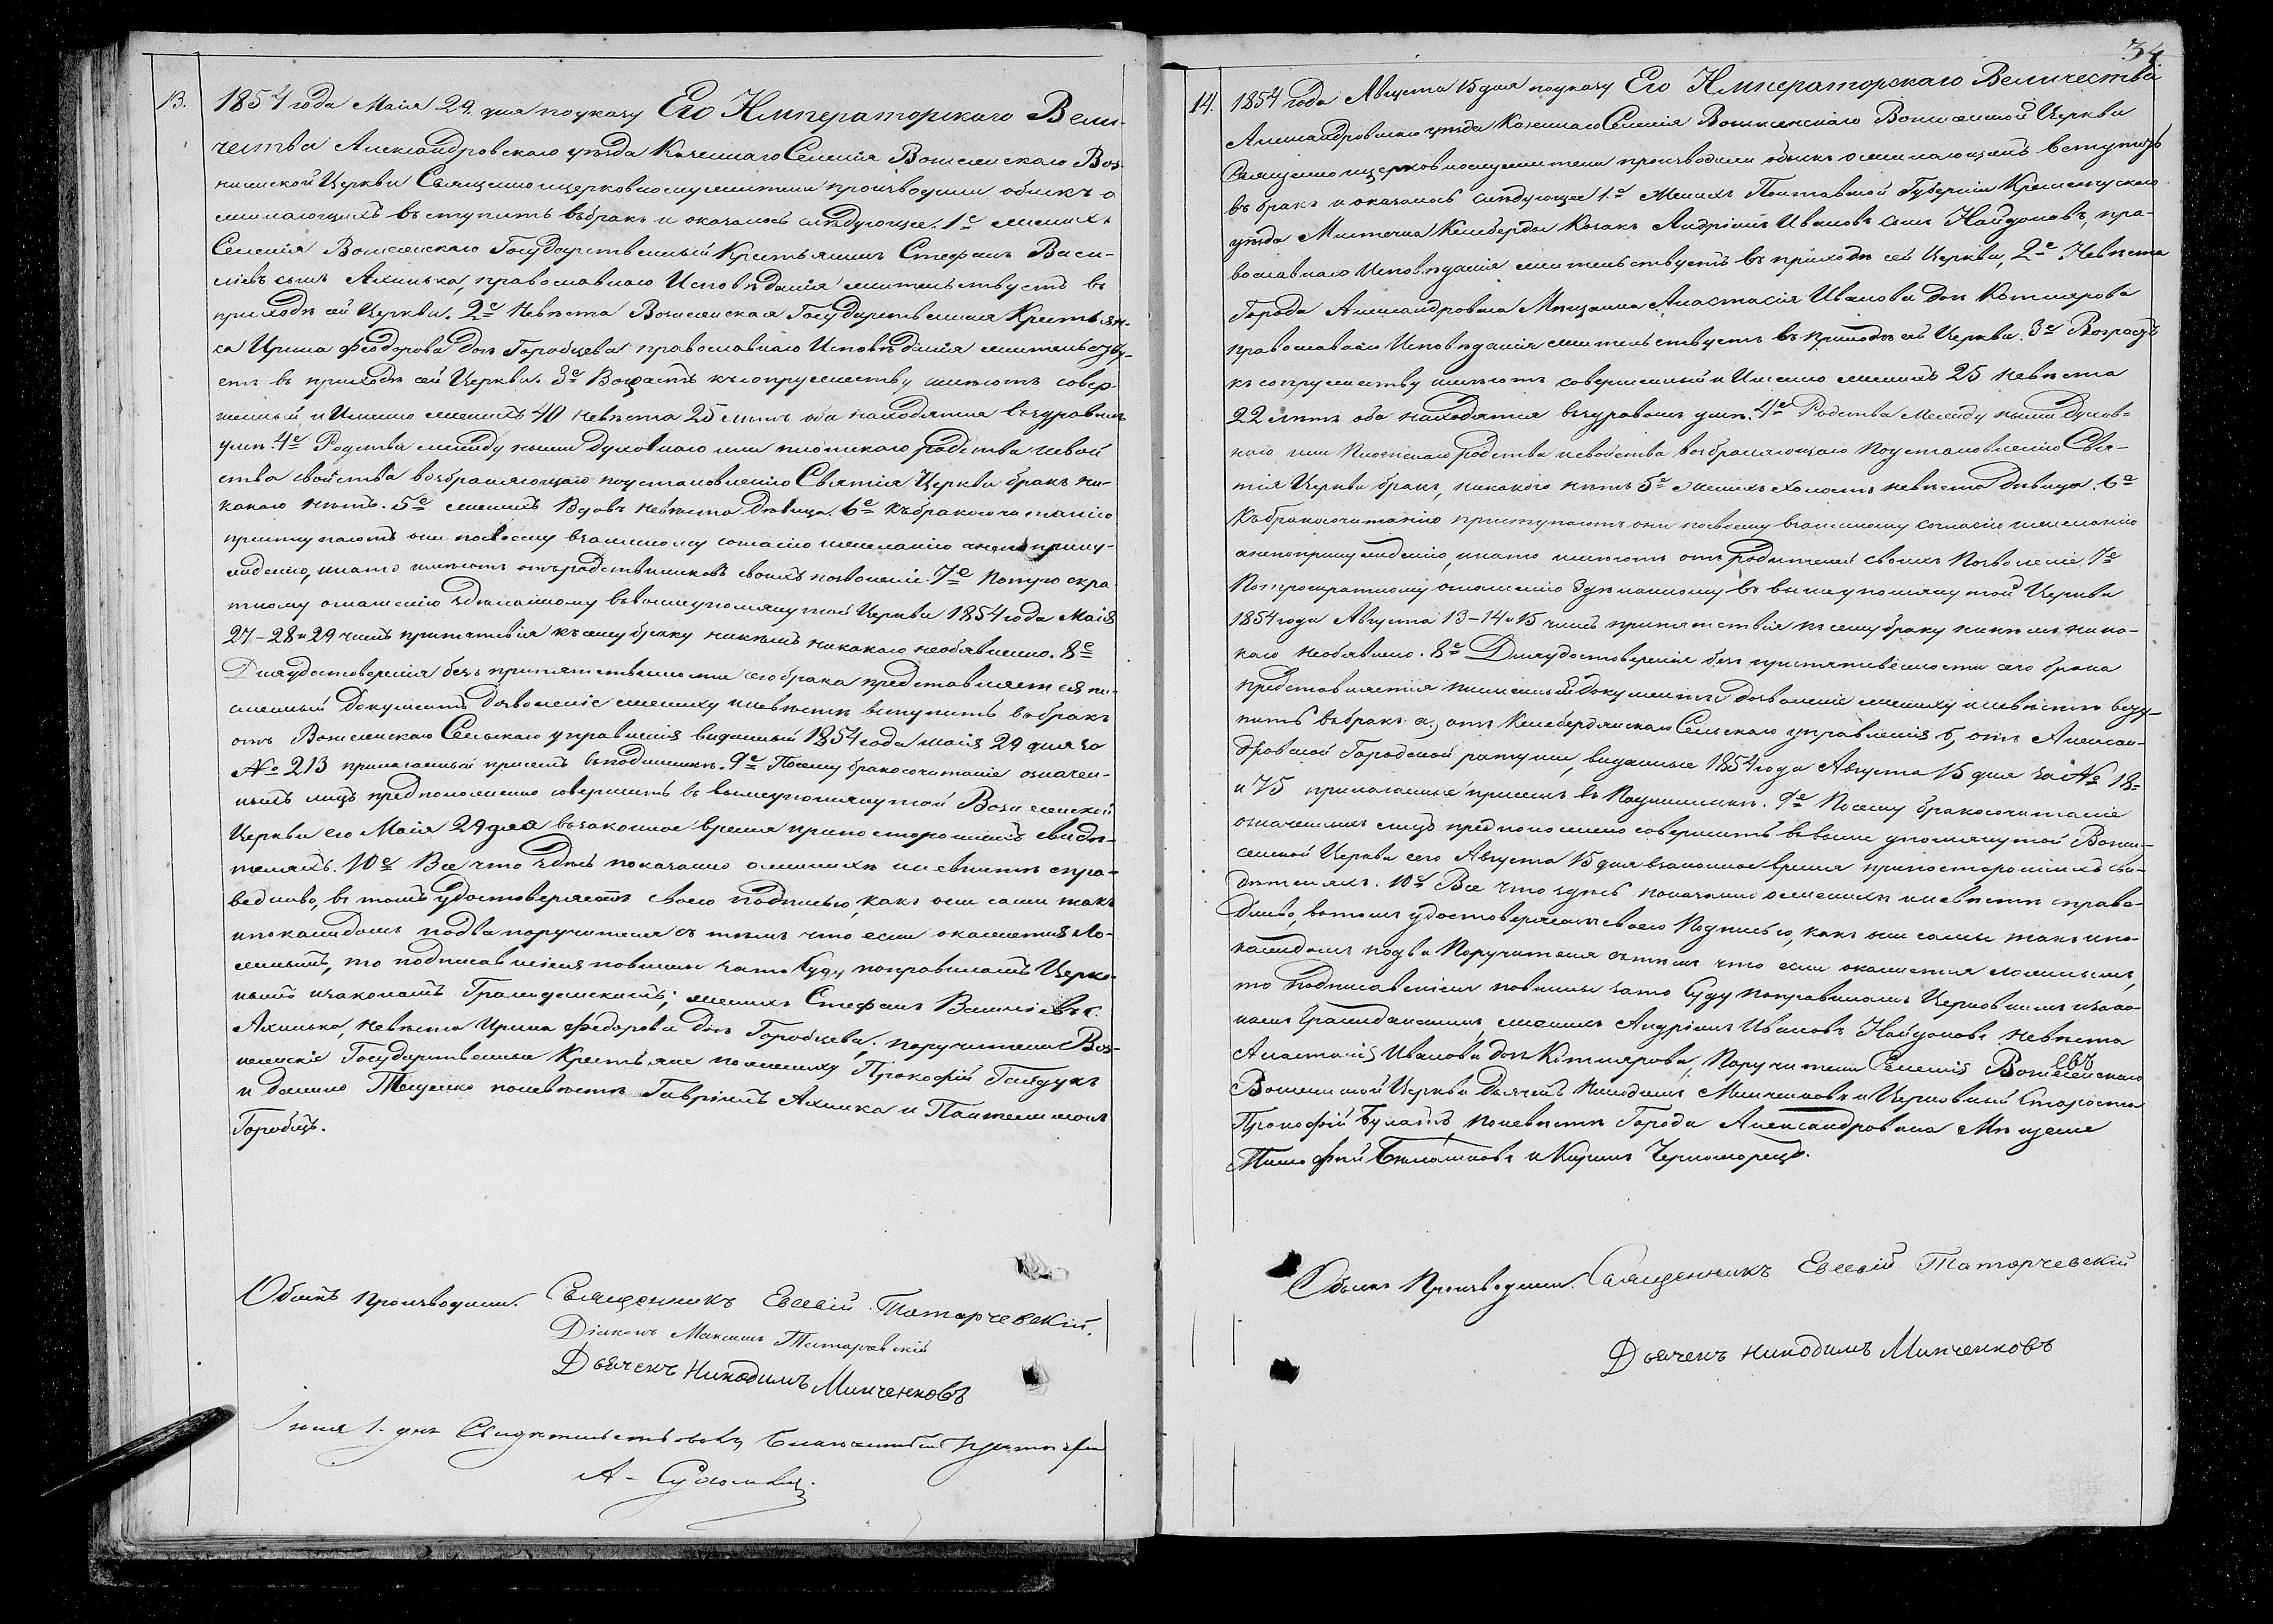 13.
1854 года Маія 29. дня по указу Его Императорскаго Вели-
чества Александровскаго уѣзда Казеннаго Селенія Вознесенскаго Воз-
несенской Церкви Священно и церковнослужители производили обыскъ о
желающихъ вступить въ бракъ и оказалось слѣдующее. 1е женихъ
Селенія Вознесенскаго Государственный Крестьянинъ Стефанъ Васи-
ліевъ сынъ Ахинька, православнаго Исповѣданія жительствуетъ въ
приходѣ сей Церкви. 2е Невѣста Вознесенская Государственная Крестьян-
ка Ирина Феодорова дочь Горобцева православнаго Исповѣданія жительству-
етъ въ приходѣ сей Церкви. 3е Возрастъ къ супружеству имѣютъ совер-
шенный и Именно женихъ 40 невѣста 25 лѣтъ оба находятся въ здравомъ
умѣ. 4е Родства между ними духовнаго или плотскаго родства и свой-
ства свойства возбраняющаго по установленію Святыя Церкви бракъ ни-
какого нѣтъ. 5е женихъ Вдовъ невѣста Дѣвица. 6е Къ бракосочитанію
приступаютъ они по своему взаимному согласію и желанію а не по прину-
жденію, и на то имѣютъ отъ родственниковъ своихъ позволеніе. 7е По трое кра
тному оглашенію здѣланному въ вышеупомянутой Церкви 1854 года Маія
27-28 и 29 чиселъ припятствія къ сему браку никѣмъ никакого необявленно. 8е
Для удостоверенія безъ припятственности сего брака представляется пи-
сменный документъ дозволеніе жениху и невѣстѣ вступить въ бракъ
отъ Вознесенскаго Сельскаго управленія выданный 1854 года маія 29 дня за
№ 213 прилагаемый присемъ въ подлинникѣ. 9е Посему бракосочитаніе означен-
ныхъ лицъ предположенно совершить въ вышеупомянутой Вознесенской
Церкви сего Маія 29 дня въ законное время при постороннихъ свидѣ-
теляхъ. 10е Все что здѣсь показано о женихѣ и невѣстѣ спра-
ведливо, въ томъ удостоверяютъ своею подписью, какъ они сами такъ
и по каждомъ по два поручителя съ тѣмъ что если окажется ло-
жнымъ, то подписавшіеся повинны за то суду по правиламъ Церко-
внымъ и законамъ Гражданскимъ; женихъ Стефанъ Василіевъ с.
Ахинька, невѣста Ирина Федорова дочь Горобцева; поручители Воз-
несенскіе Государственные Крестьяне по женихѣ Прокофій Гайдукъ
и Данило Тещенко по невѣстѣ Гавріилъ Ахинка и Пантелимонъ
Горобецъ.
Обыскъ Производили. Священникъ Евсевій Татарчевскій.
Діаконъ Максимъ Татарчевскій
Дьячекъ Никодимъ Минченковъ
Іюня 1. дня Свидѣтельствовалъ Благочинный
34
14.
1854 года Августа 15 дня по указу Его Императорскаго Величества
Александровскаго уѣзда Казеннаго Селенія Вознесенскаго Вознесенской Церкви
Священно и церковнослужители производили обыскъ о желающихъ вступить
въ бракъ и оказалось слѣдующее 1е Женихъ Полтавской Губерніи Кременчускаго
уѣзда Мистечка Келеберды Козакъ Андріянъ Ивановъ сынъ Найдоновъ, пра-
вославнаго Исповѣданія жительствуетъ въ приходѣ сей Церкви, 2е Невѣста
Города Александровска Мѣщанка Анастасія Иванова дочь Котлярова
православнаго Исповѣданія жительствуетъ въ приходѣ сей Церкви. 3е Возрастъ
къ супружеству имѣютъ совершенный и Именно женихъ 25 невѣста
22 лѣтъ оба находятся въ здравомъ умѣ. 4е Родства Между ними Духов-
наго или Плотскаго родства и свойства возбраняющаго по установленію Свя-
тыя Церкви бракъ, никакого нѣтъ 5е Женихъ холостъ невѣста Дѣвица. 6е
Къ бракосочитанію приступаютъ они по своему взаимному согласію и желанію
а не по принужденію, и на то имѣютъ отъ родителей своихъ Позволеніе. 7е
По троекратному оглашенію здѣланному въ вышеупомянутой Церкви
1854 года Августа 13-14 и 15 чиселъ припятствія къ сему браку никѣмъ ника-
кого необявлено. 8е Для удостоверенія безъ припятственности сего брака
представляется писменный документъ дозволеніе жениху и невѣстѣ всту-
пить въ бракъ а, отъ Келебердянскаго Сельскаго управленія б, отъ Алексан-
дровской Городской ратуши, выданные 1854 года Августа 15 дня за № 18
и 75 прилагаемые присемъ въ Подлинникѣ. 9е Посему бракосочитаніе
означенныхъ лицъ предположенно совершить въ выше упомянутой Возне-
сенской Церкви сего Августа 15 дня въ законное время при постороннихъ сви-
дѣтеляхъ. 10е Все что здѣсь показано о женихѣ и невѣстѣ справе-
дливо, въ томъ удостоверяютъ своею Подписью, какъ они сами такъ и по
каждомъ по два Поручителя съ тѣмъ что если окажется ложнымъ,
то подписавшіеся повинны за то Суду по правиламъ Церковнымъ и зако-
намъ Гражданскимъ, женихъ Андріянъ Ивановъ Найдоновъ невѣста
Анастасія Иванова дочь Котлярова, Поручители Селенія Вознесенскаго
Вознесенской Церкви Дьячекъ Никодимъ Минченковъ и Церковный Староста
Прокофій Булатъ, по невѣстѣ Города Александровска Мѣщане
Тимофей Билашковъ и Кузьма Черноморецъ.
Обыскъ Производили. Священникъ Евсевій Татарчевскій
Дьячекъ Никодимъ Минченковъ